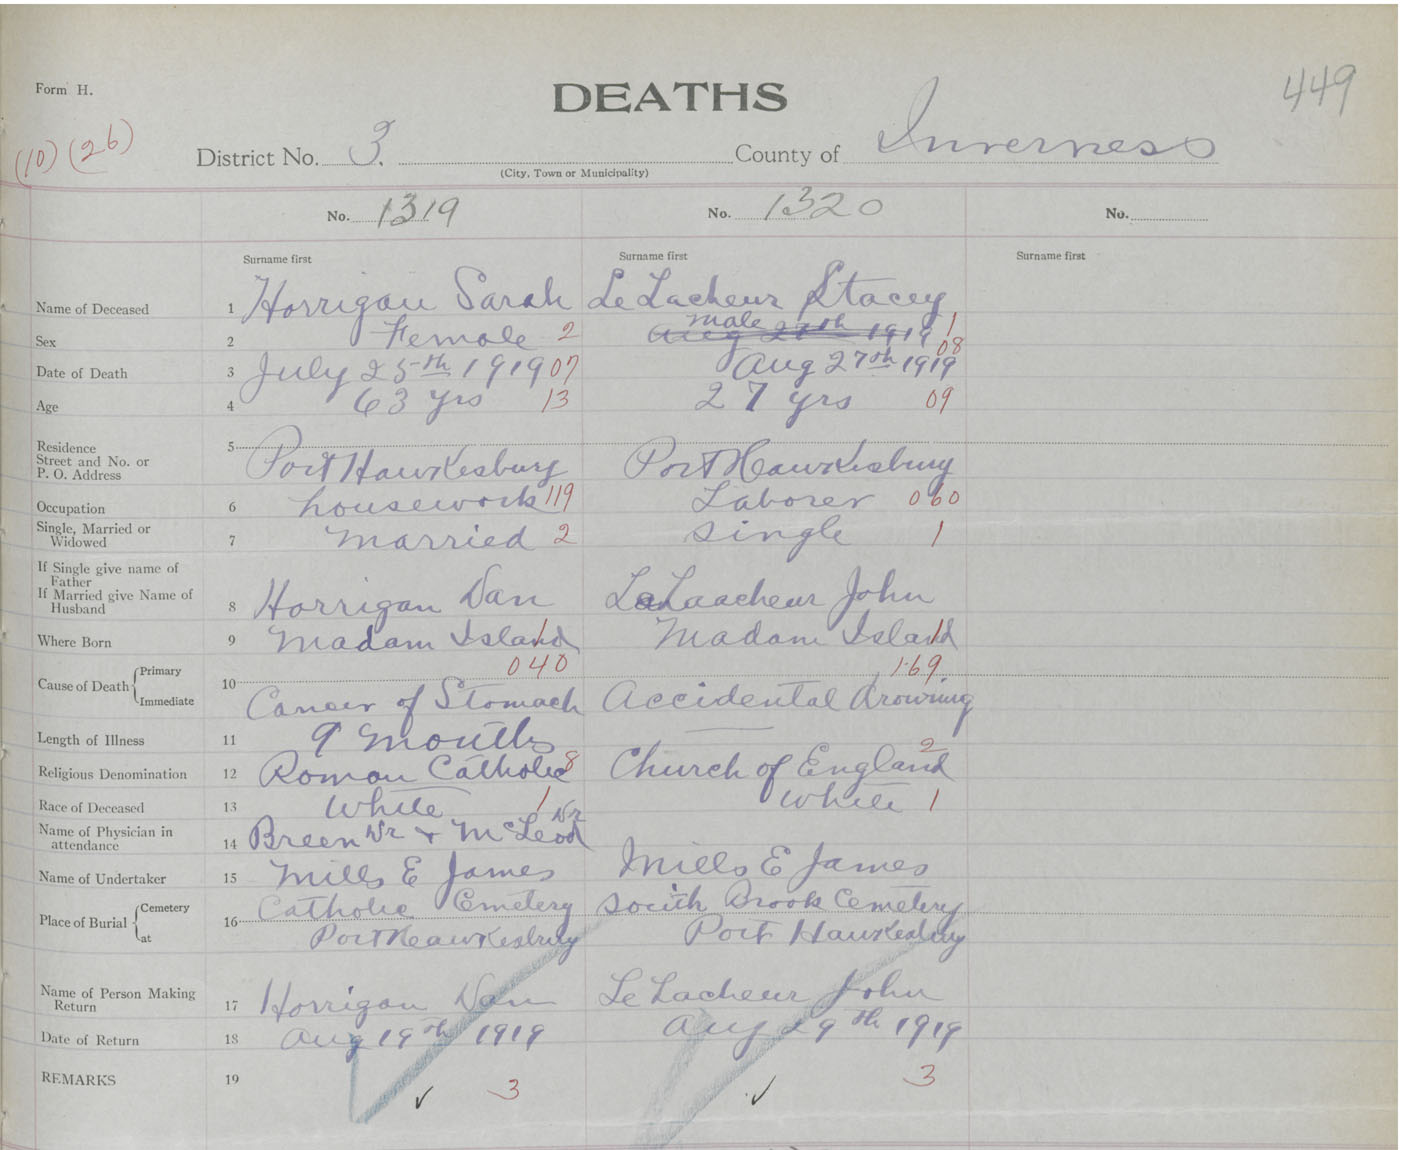 Form H.
DEATHS
449
(10) (26)
District No. 3. County of Inverness
(City, Town or Municipality)
No. 1319 No. 1320 No.
Surname first Surname first Surname first
Name of Deceased 1 Horrigan Sarah Le Lacheur Stacey
Sex 2 Female 2 male Aug 27th 1919 1
Date of Death 3 July 25th 1919 07 Aug 27th 1919 08
Age 4 63 yrs 13 27 yrs 09
Residence
Street and No. or
P. O. Address 5 Port Hawkesbury Port Hawkesbury
Occupation 6 housework 119 Laborer 060
Single, Married or
Widowed 7 married 2 single 1
If Single give name of
Father
If Married give Name of
Husband 8 Horrigan Dan LeLaacheur John
Where Born 9 Madam Island 1 Madam Island 1
040 169
Cause of Death Primary
Immediate 10 Cancer of Stomach Accidental drowning
Length of Illness 11 9 months —
Religious Denomination 12 Roman Catholic 8 Church of England 2
Race of Deceased 13 White 1 White 1
Name of Physician in
attendance 14 Breen Dr + McLeod Dr
Name of Undertaker 15 Mills E James Mills E James
Place of Burial Cemetery
at 16 Catholic Cemetery South Brook Cemetery
Port Hawkesbury Port Hawkesbury
Name of Person Making
Return 17 Horrigan Dan Le Lacheur John
Date of Return 18 Aug 19th 1919 Aug 29th 1919
REMARKS 19 ✓ 3 ✓ 3